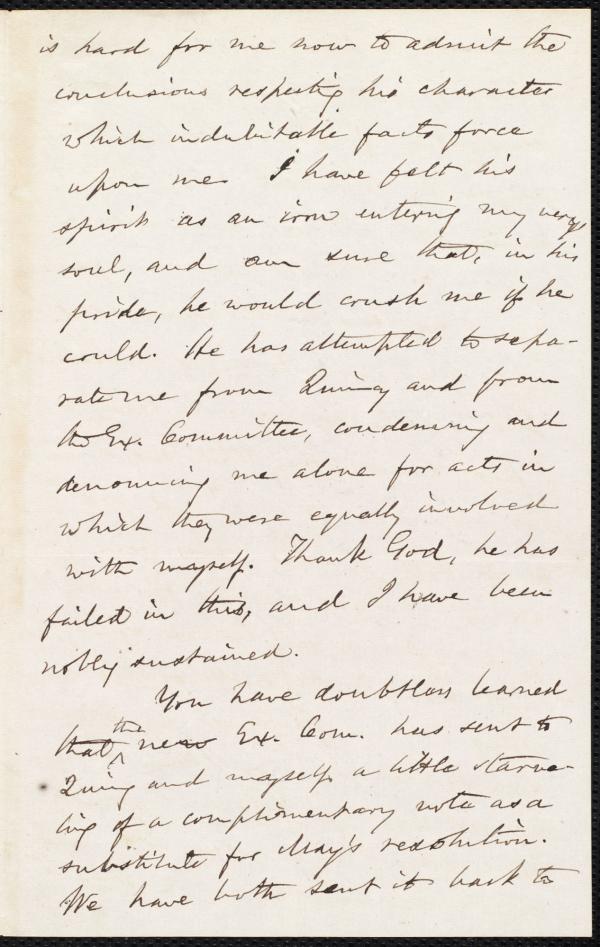 is hard for me now to admit the
conclusions respecting his character
which indubitable facts force
upon me. I have felt his
spirit as an iron entering my very
soul, and am sure that, in his
pride, he would crush me if he
could. He has attempted to sepa-
rate me from Quincy and from
the Ex. Committee, condemning and
denouncing me alone for acts in
which they were equally involved
with myself. Thank God, he has
failed in this, and I have been
nobly sustained.
You have doubtless learned
that the new Ex. Com. has sent to
Quincy and myself a little starve-
ling of a complimentary note as a
substitute for May's resolution.
We have both sent it back to